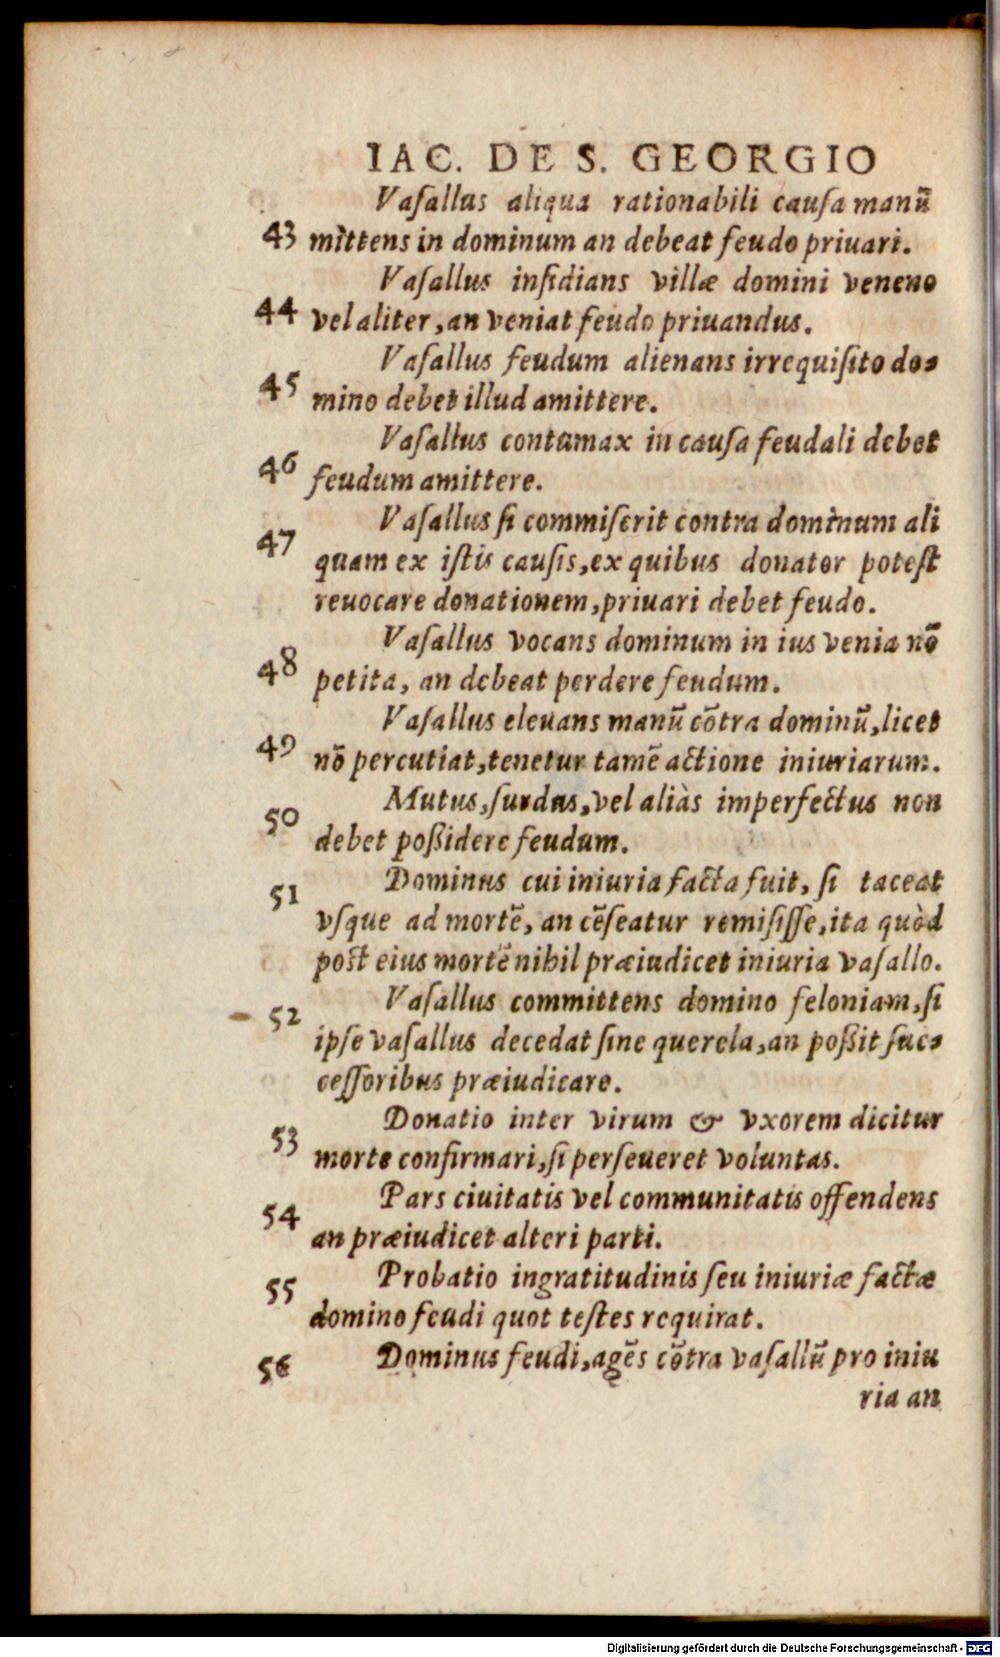 IAC. DE S. GEORGIO
Vaſallus aliqua rationabili cauſa manū
43 mittens in dominum an debeat feudo priuari.
Vaſallus inſidians villæ domini veneno
44 vel aliter, an veniat feudo priuandus.
Vaſallus feudum alienans irrequiſito do-
45 mino debet illud amittere.
Vaſallus contumax in cauſa feudali debet
46 feudum amittere.
Vaſallus ſi commiſerit contra dominum ali
47 quam ex iſtis cauſis, ex quibus donator poteſt
reuocare donationem, priuari debet feudo.
Vaſallus vocans dominum in ius venia nō
48 petita, an debeat perdere feudum.
Vaſallus eleuans manū cōtra dominū, licet
49 nō percutiat, tenetur tamē actione iniuriarum.
Mutus, ſurdus, vel aliàs imperfectus non
50 debet poßidere feudum.
51 Dominus cui iniuria facta fuit, ſi taceat
vſque ad mortē, an cēſeatur remiſiſſe, ita quòd
poſt eius mortē nihil præiudicet iniuria vaſallo.
52 Vaſallus committens domino feloniam, ſi
ipſe vaſallus decedat ſine querela, an poßit ſuc-
ceſſoribus præiudicare.
Donatio inter virum & vxorem dicitur
53 morte confirmari, ſi perſeueret voluntas.
Pars ciuitatis vel communitatis offendens
54 an præiudicet alteri parti.
Probatio ingratitudinis ſeu iniuriæ factæ
55 domino feudi quot teſtes requirat.
56 Dominus feudi, agēs cōtra vaſallū pro iniu
ria an
Digitalisierung gefördert durch die Deutsche Forschungsgemeinschaft - DFG